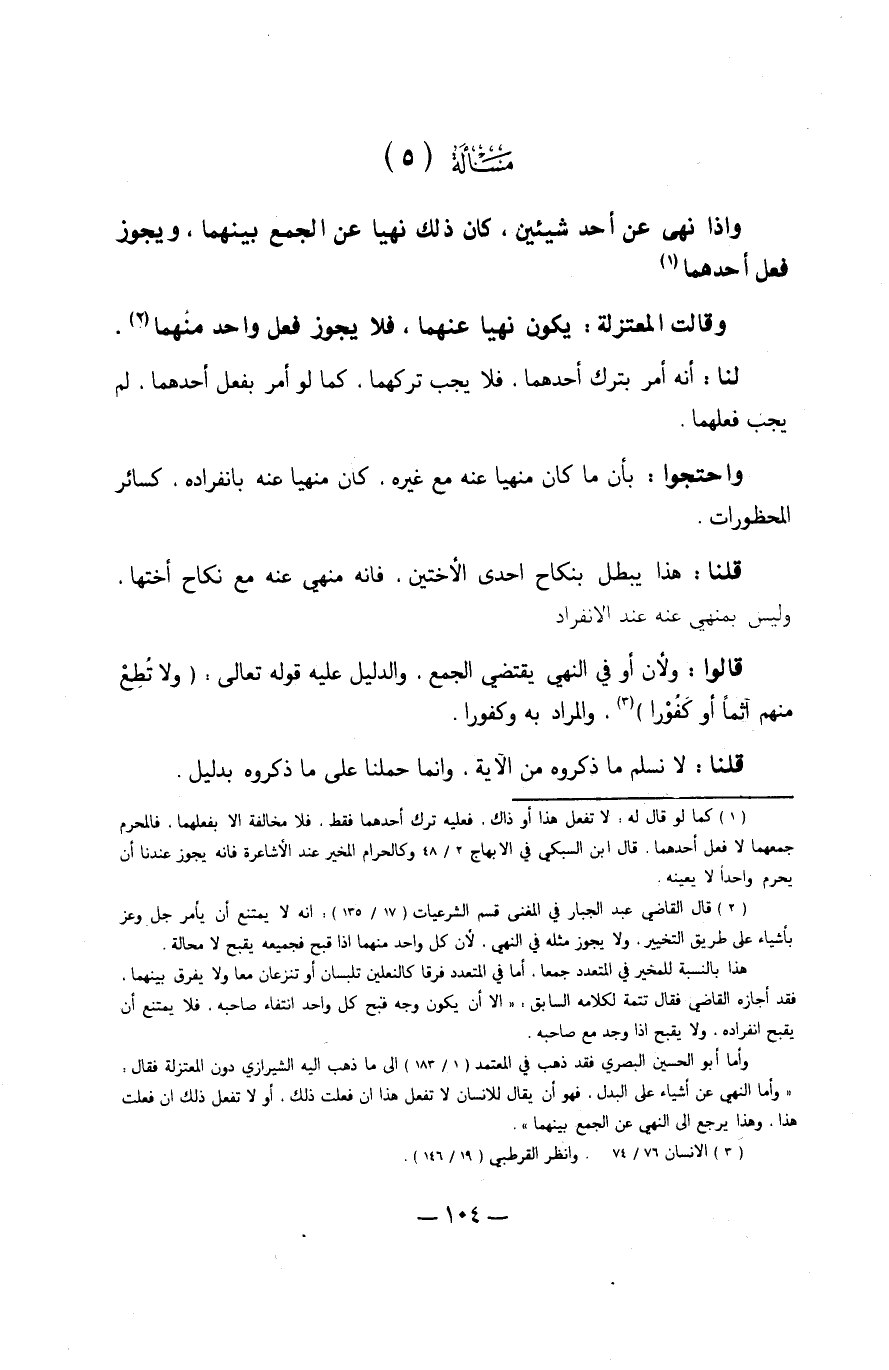 مسألة ( ٥ )
واذا نهى عن أحد شيئين ، كان ذلك نهيا عن الجمع بينهما ، ويجوز
فعل أحدهما (١)
وقالت المعتزلة : يكون نهيا عنهما ، فلا يجوز فعل واحد منهما (٢) .
لنا : أنه أمر بترك أحدهما . فلا يجب تركهما . كما لو أمر بفعل أحدهما . لم
يجب فعلهما .
واحتجوا : بأن ما كان منهيا عنه مع غيره . كان منهيا عنه بانفراده . كسائر
المحظورات .
قلنا : هذا يبطل بنكاح احدى الأختين . فانه منهي عنه مع نكاح أختها .
وليس بمنهي عنه عند الانفراد
قالوا : ولأن أو في النهي يقتضي الجمع . والدليل عليه قوله تعالى : ( ولا تُطِعْ
منهم آثماً أو كَفُوْرا ) (٣) . والمراد به وكفورا .
قلنا : لا نسلم ما ذكروه من الآية . وانما حملنا على ما ذكروه بدليل .
( ١ ) كما لو قال له : لا تفعل هذا أو ذاك . فعليه ترك أحدهما فقط . فلا مخالفة الا بفعلهما . فالمحرم
جمعهما لا فعل أحدهما . قال ابن السبكي في الابهاج ٢ / ٤٨ وكالحرام المخير عند الأشاعرة فانه يجوز عندنا أن
يحرم واحداً لا يعينه .
( ٢ ) قال القاضي عبد الجبار في المغنى قسم الشرعيات ( ١٧ / ١٣٥ ) : انه لا يمتنع أن يأمر جل وعز
بأشياء على طريق التخيير . ولا يجوز مثله في النهي . لأن كل واحد منهما اذا قبح فجميعه يقبح لا محالة .
هذا بالنسبة للمخير في المتعدد جمعا . أما في المتعدد فرقا كالنعلين تلبسان أو تنزعان معا ولا يفرق بينهما .
فقد أجازه القاضي فقال تتمة لكلامه السابق : « الا أن يكون وجه قبح كل واحد انتفاء صاحبه . فلا يمتنع أن
يقبح انفراده . ولا يقبح اذا وجد مع صاحبه .
وأما أبو الحسين البصري فقد ذهب في المعتمد ( ١ / ١٨٣ ) الى ما ذهب اليه الشيرازي دون المعتزلة فقال :
« وأما النهي عن أشياء على البدل . فهو أن يقال للانسان لا تفعل هذا ان فعلت ذلك . أو لا تفعل ذلك ان فعلت
هذا . وهذا يرجع الى النهي عن الجمع بينهما » .
( ٣ ) الانسان ٧٦ / ٧٤ . وانظر القرطبي ( ١٩ / ١٤٦ ) .
— ١٠٤ —